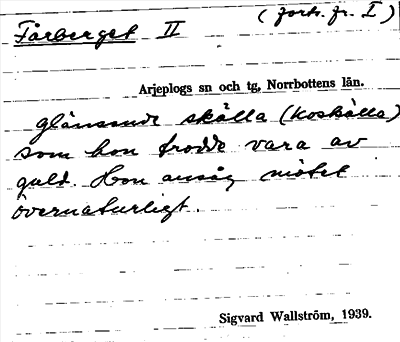 Fårberget II (forts. fr. I)
Arjeplogs sn och tg, Norrbottens län.
glänsande skälla (koskälla)
som hon trodde vara av
guld. Hon ansåg mötet
övernaturligt.
Sigvard Wallström, 1939.